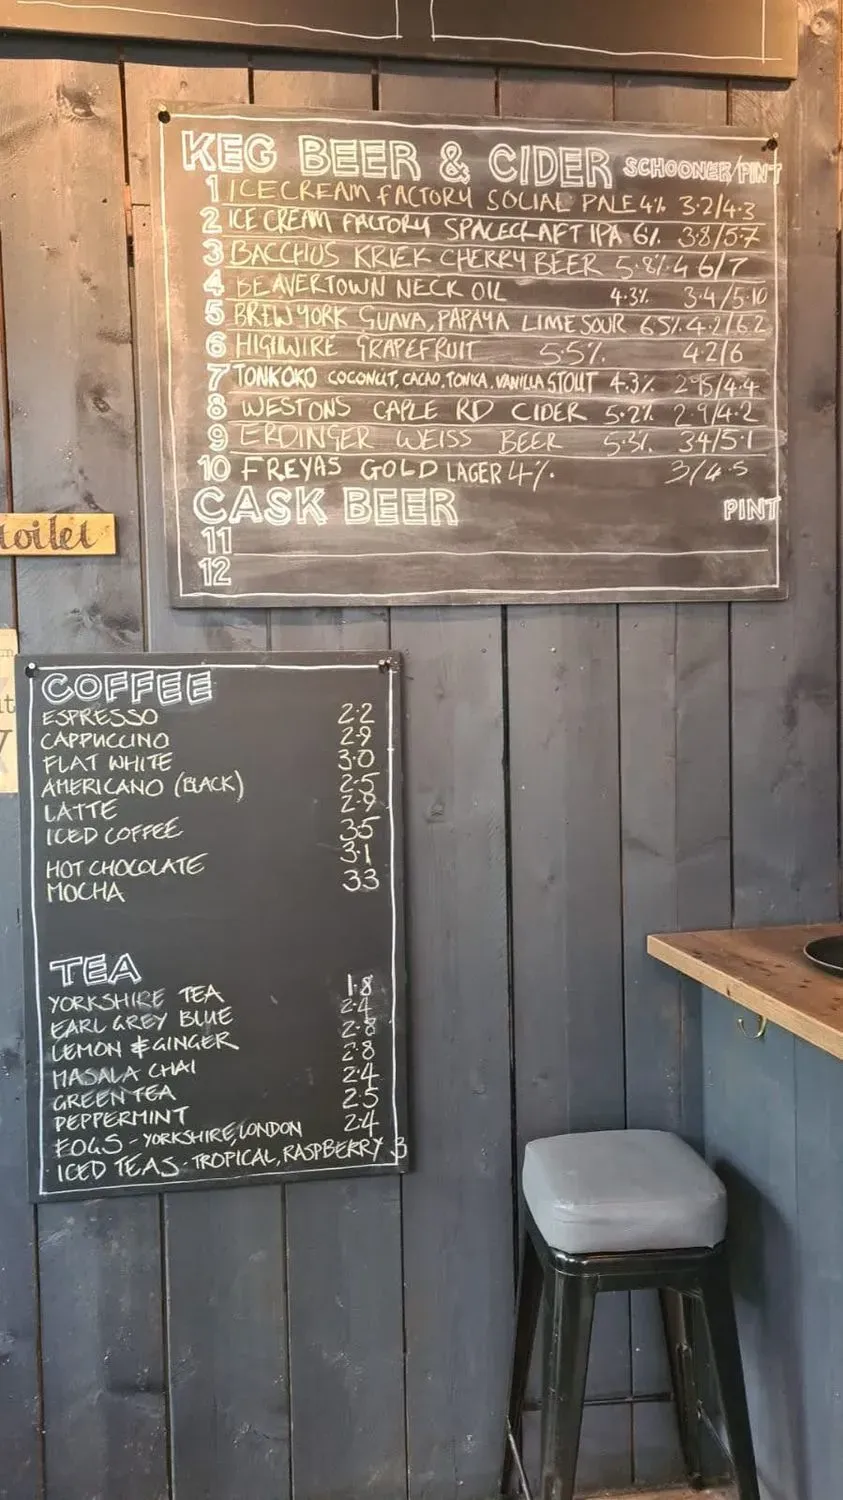 KEG BEER & CIDER SCHOONER/PINT
1 ICECREAM FACTORY SOCIAL PALE 4% 3.2/4.3
2 ICE CREAM FACTORY SPACECRAFT IPA 6% 3.8/5.7
3 BACCHUS KRIEK CHERRY BEER 5.8% 4.6/7
4 BEAVERTOWN NECK OIL 4.3% 3.4/5.10
5 BREW YORK GUAVA, PAPAYA LIME SOUR 6.5% 4.2/6.2
6 HIGHWIRE GRAPEFRUIT 5.5% 4.2/6
7 TONKOKO COCONUT, CACAO, TONKA, VANILLA STOUT 4.3% 2.95/4.4
8 WESTONS CAPLE RD CIDER 5.2% 2.9/4.2
9 ERDINGER WEISS BEER 5.3% 3.4/5.1
10 FREYAS GOLD LAGER 4% 3/4.5
CASK BEER PINT
toilet
11
12
COFFEE
ESPRESSO 2.2
CAPPUCCINO 2.9
FLAT WHITE 3.0
AMERICANO (BLACK) 2.5
LATTE 2.9
ICED COFFEE 3.5
HOT CHOCOLATE 3.1
MOCHA 3.3
TEA
YORKSHIRE TEA 1.8
EARL GREY BLUE 2.4
LEMON & GINGER 2.8
MASALA CHAI 2.8
GREEN TEA 2.4
PEPPERMINT 2.5
FOGS - YORKSHIRE, LONDON 2.4
ICED TEAS - TROPICAL, RASPBERRY 3